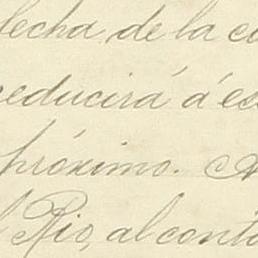 fecha, de la co
reducirá á es
próximo. A
l Rio, al conta